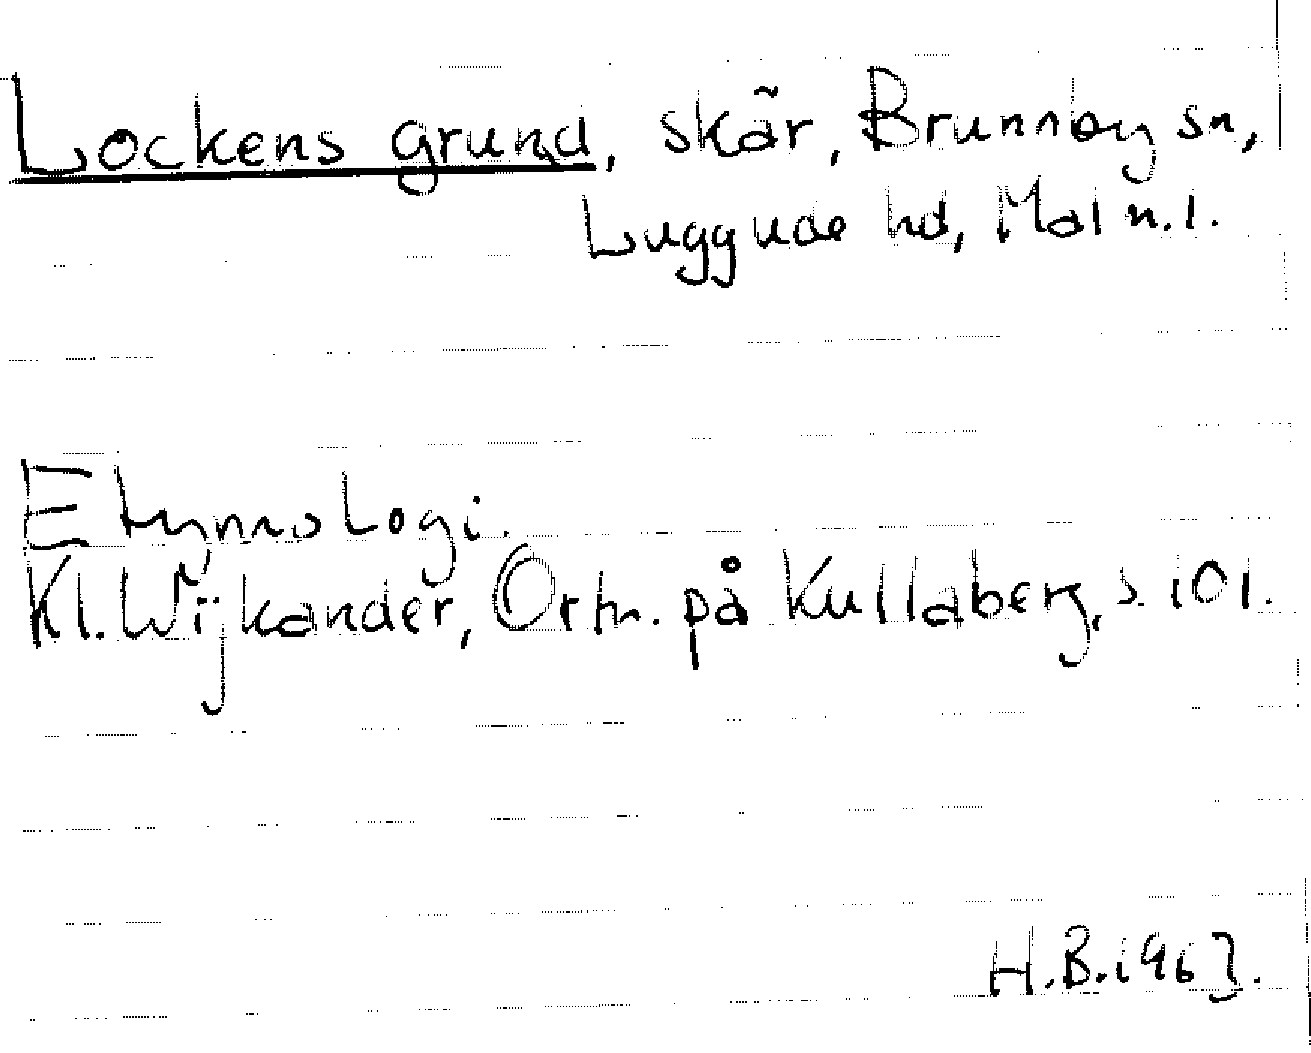 Lockens grund, skär, Brunnby sn,
Luggude hd, Malm. l.
Etymologi.
Kl. Wijkander, Ortn. på Kullaberg, s. 101.
H.B. 1963.